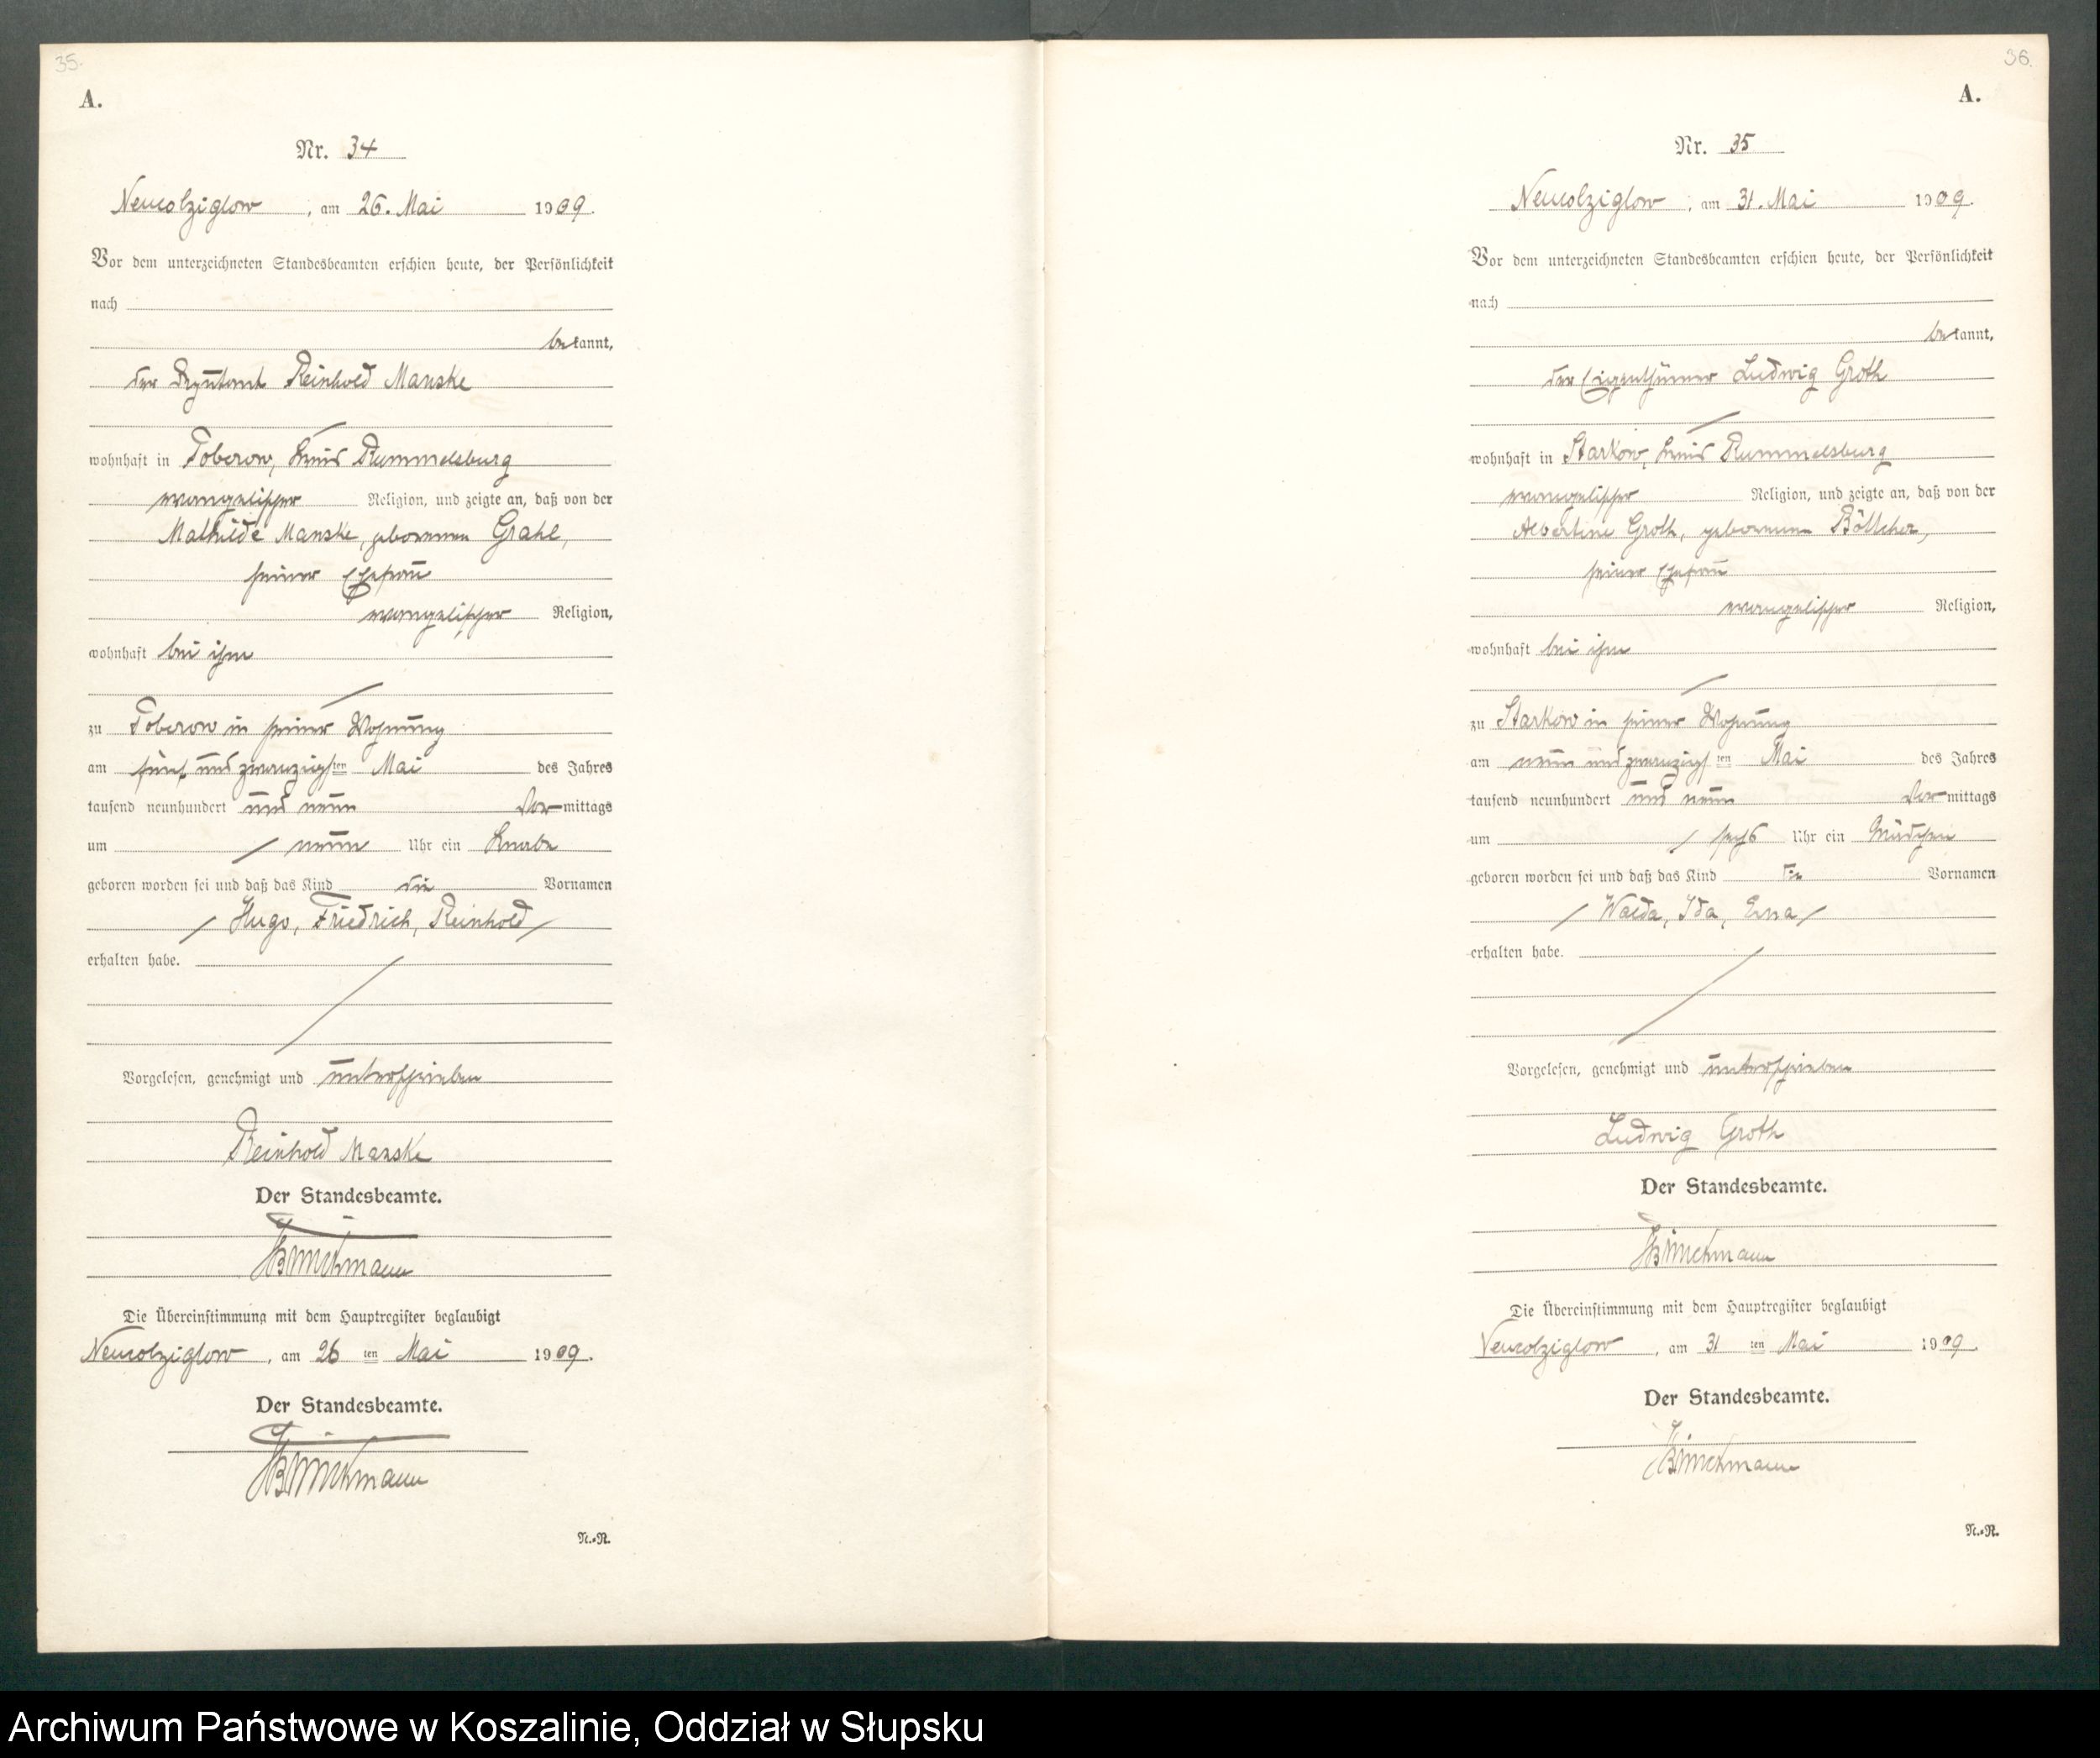 35.
A.
Nr. 34
Neucolziglow, am 26. Mai 1909.
Vor dem unterzeichneten Standesbeamten erschien heute, der Persönlichkeit
nach
bekannt,
der Deputant Reinhold Manske
wohnhaft in Toberow, Kreis Rummelsburg
evangelischer Religion, und zeigte an, daß von der
Mathilde Manske, geborenen Grahl,
seiner Ehefrau
evangelischer Religion,
wohnhaft bei ihm
zu Toberow in seiner Wohnung
am fünf und zwanzigsten Mai des Jahres
tausend neunhundert und neun Vormittags
um neun Uhr ein Knabe
geboren worden sei und daß das Kind die Vornamen
Hugo, Friedrich, Reinhold
erhalten habe.
Vorgelesen, genehmigt und unterschrieben
Reinhold Manske
Der Standesbeamte.
Die Übereinstimmung mit dem Hauptregister beglaubigt
Neucolziglow, am 26 ten Mai 1909.
Der Standesbeamte.
N.=R.
36.
A.
Nr. 35
Neucolziglow, am 31. Mai 1909.
Vor dem unterzeichneten Standesbeamten erschien heute, der Persönlichkeit
nach
bekannt,
der Eigenthümer Ludwig Groth
wohnhaft in Starkow, Kreis Rummelsburg
evangelischer Religion, und zeigte an, daß von der
Albertine Groth, geborenen Böttcher,
seiner Ehefrau
evangelischer Religion,
wohnhaft bei ihm
zu Starkow in seiner Wohnung
am neun und zwanzigsten Mai des Jahres
tausend neunhundert und neun Vormittags
um sechs Uhr ein Mädchen
geboren worden sei und daß das Kind die Vornamen
Walda, Ida, Erna
erhalten habe.
Vorgelesen, genehmigt und unterschrieben
Ludwig Groth
Der Standesbeamte.
Die Übereinstimmung mit dem Hauptregister beglaubigt
Neucolziglow, am 31 ten Mai 1909.
Der Standesbeamte.
N.=R.
Archiwum Państwowe w Koszalinie, Oddział w Słupsku